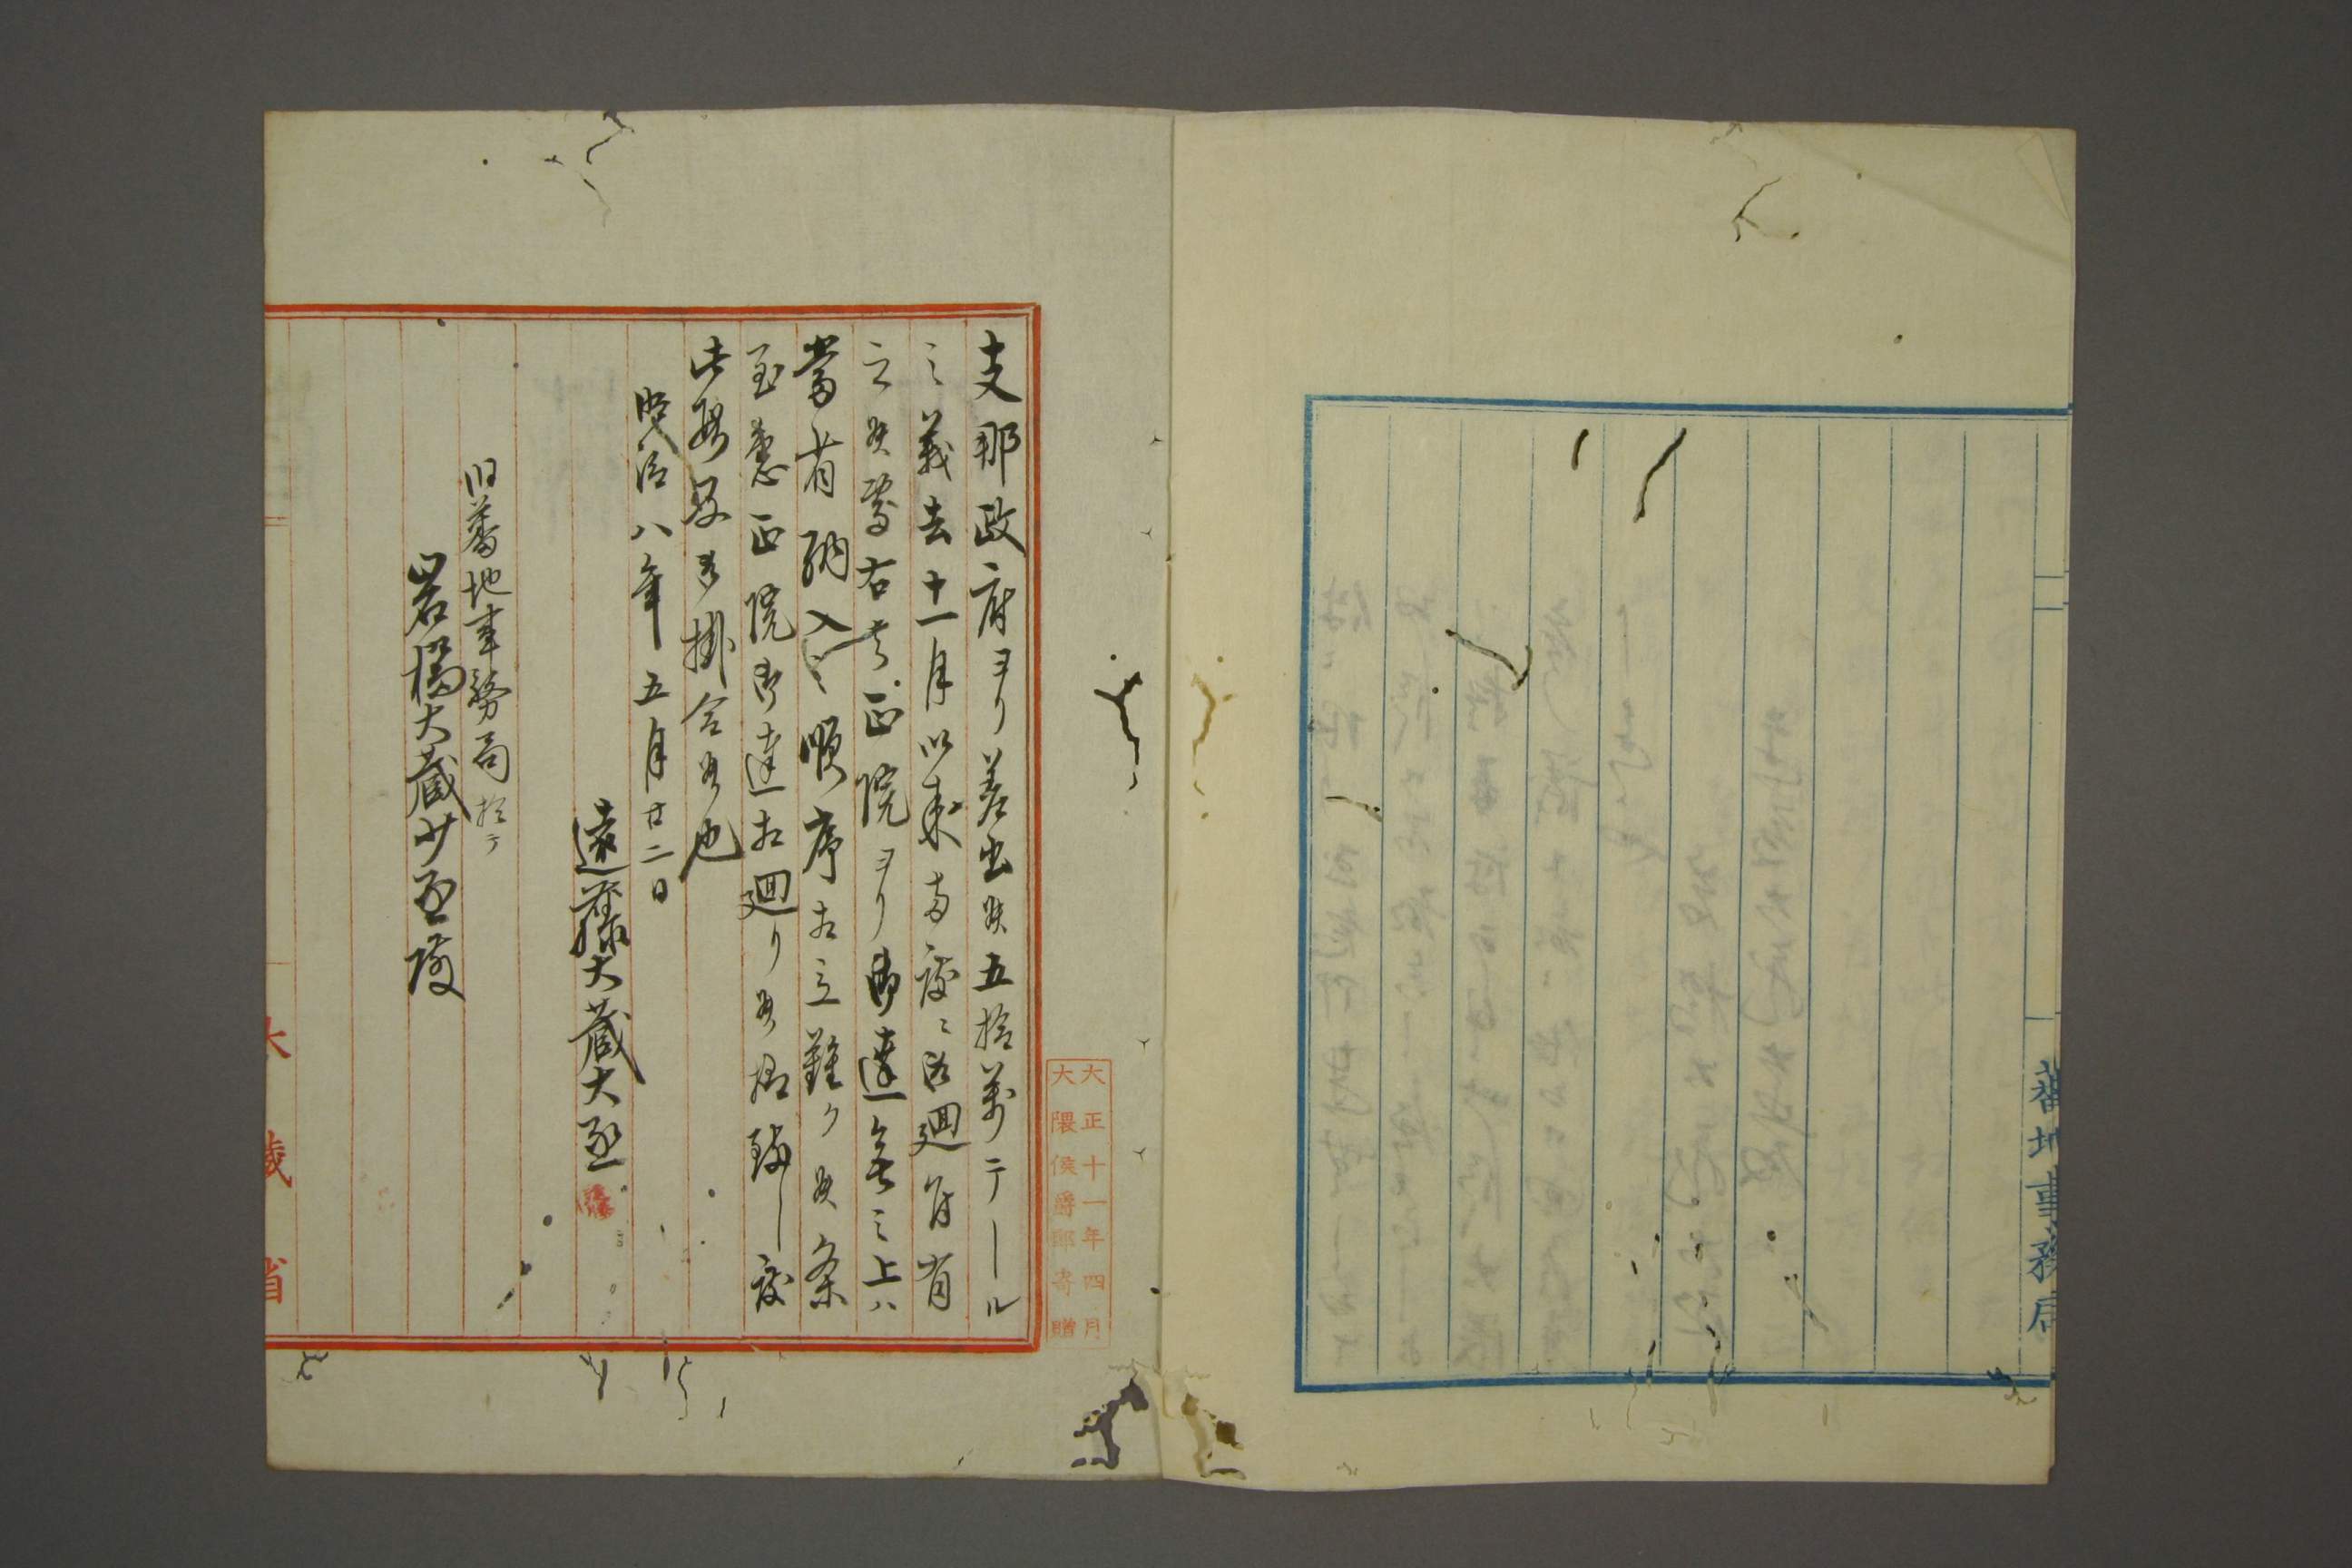 蕃地事務局
大正十一年四月
大隈侯爵邸寄贈
支那政府ヨリ差出候五拾萬テール
之義去十一月以来
候等右者正院ヨリ御達無之上ハ
當省納入之順序相立難ク候条
至急正院御達相廻リ候様致し度
此段及御掛合候也
明治八年五月廿二日
遠藤大蔵大丞
旧蕃地事務局
岩橋大蔵少丞殿
大蔵省